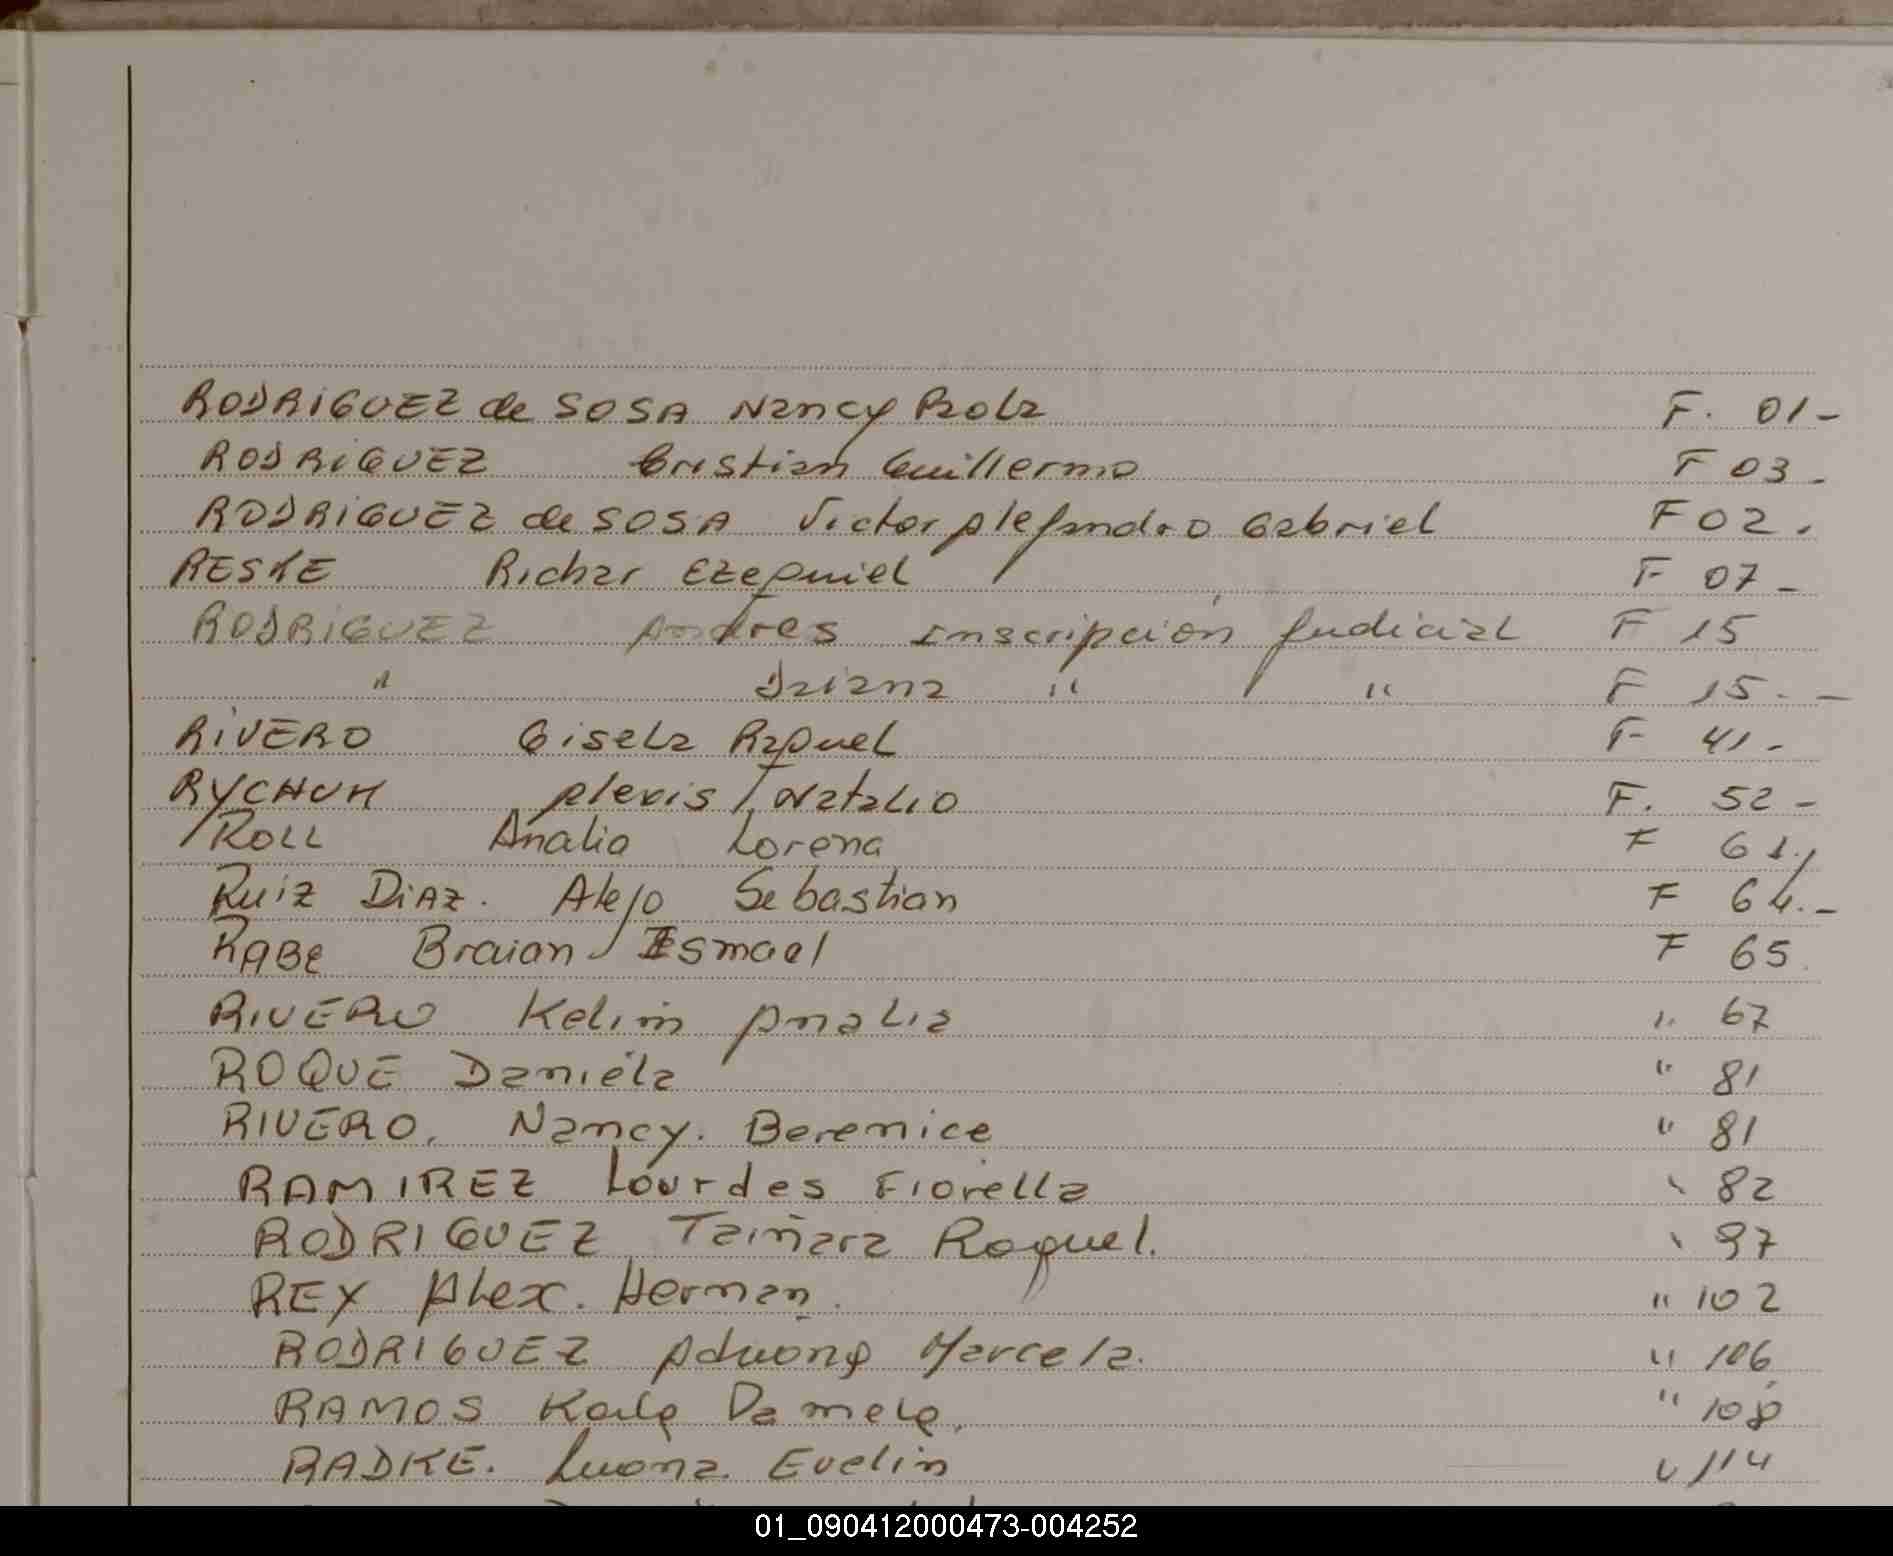 RODRIGUEZ de SOSA Nancy Paola F. 01-
RODRIGUEZ Cristian Guillermo F 03-
RODRIGUEZ de SOSA Victor Alejandro Gabriel F 02.
RESKE Richar Ezequiel F 07-
RODRIGUEZ Andres Inscripción Judicial F 15
" Daiana " " F 15.-
RIVERO Gisela Raquel F 41-
RYCHUK Alexis Natalio F. 52-
ROLL Analia Lorena F 61.
RUIZ DIAZ. Alejo Sebastian F 64.-
RABE Braian Ismael F 65.
RIVERO Kelim Analia " 67
ROQUE Daniela " 81
RIVERO. Nancy. Berenice " 81
RAMIREZ Lourdes Fiorella " 82
RODRIGUEZ Tainara Raquel. " 97
REY Alex. Hernan. " 102
RODRIGUEZ Marcela. " 106
RAMOS " 108
RADKE. Luana. Evelin " 114
01_090412000473-004252